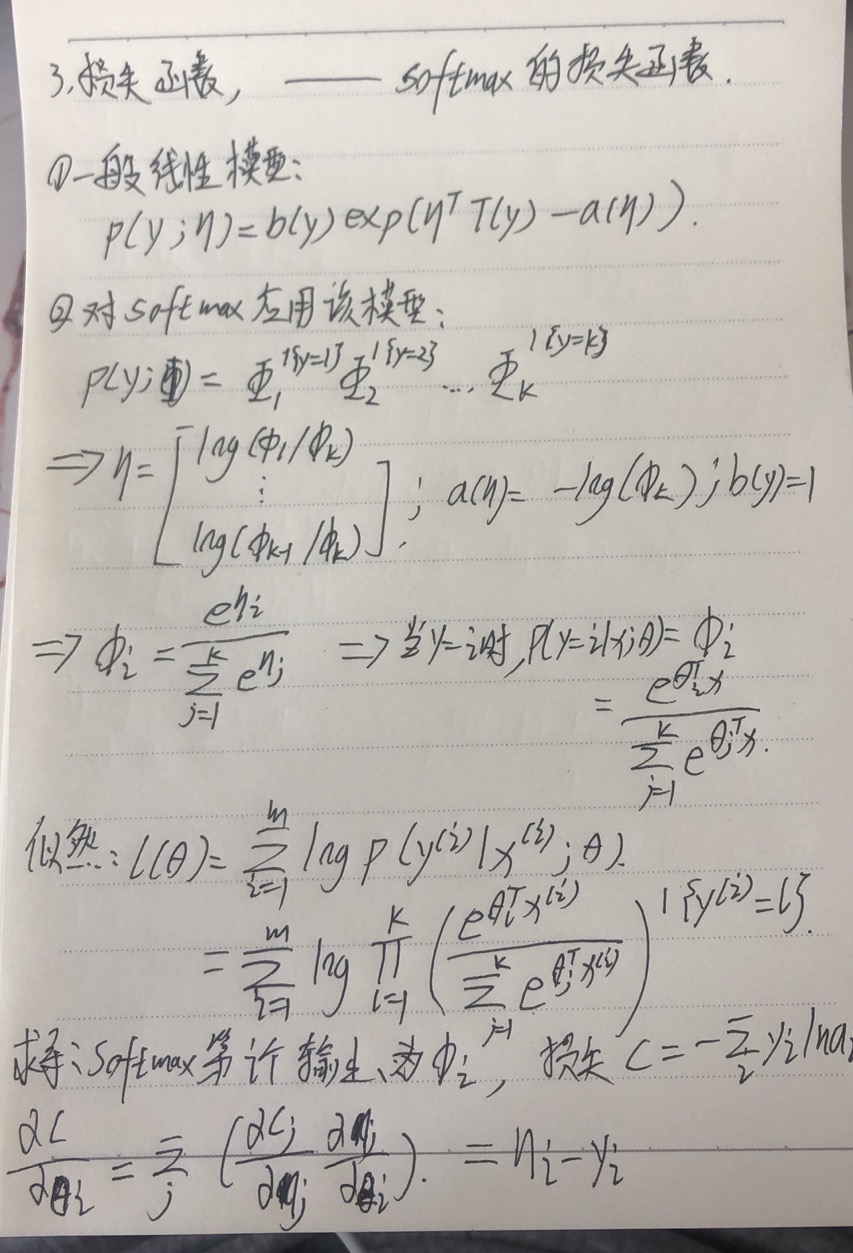 3.损失函数, —— softmax的损失函数.
①一般线性模型:
p(y;η)=b(y)exp(η^T T(y)-a(η)).
②对softmax应用该模型:
p(y;Φ)= Φ_1^{1{y=1}} Φ_2^{1{y=2}} ... Φ_k^{1{y=k}}
⇒ η= [log(Φ_1/Φ_k) ⋮ log(Φ_{k-1}/Φ_k)]; a(η)= -log(Φ_k); b(y)=1
⇒ Φ_i = e^{η_i} / Σ_{j=1}^{k} e^{η_j} ⇒ 当y=i时,P(y=i|x;θ)= Φ_i
= e^{θ_i^T x} / Σ_{j=1}^{k} e^{θ_j^T x}.
似然: l(θ)= Σ_{i=1}^{m} log P(y^{(i)}|x^{(i)};θ).
= Σ_{i=1}^{m} log Π_{l=1}^{k} (e^{θ_l^T x^{(i)}} / Σ_{j=1}^{k} e^{θ_j^T x^{(i)}})^{1{y^{(i)}=l}}.
求导: softmax第i个输出为Φ_i, 损失 C=-Σ_i y_i ln a_i
∂C/∂θ_i = Σ_j (∂C_j/∂η_j ∂η_j/∂θ_i). = η_i-y_i